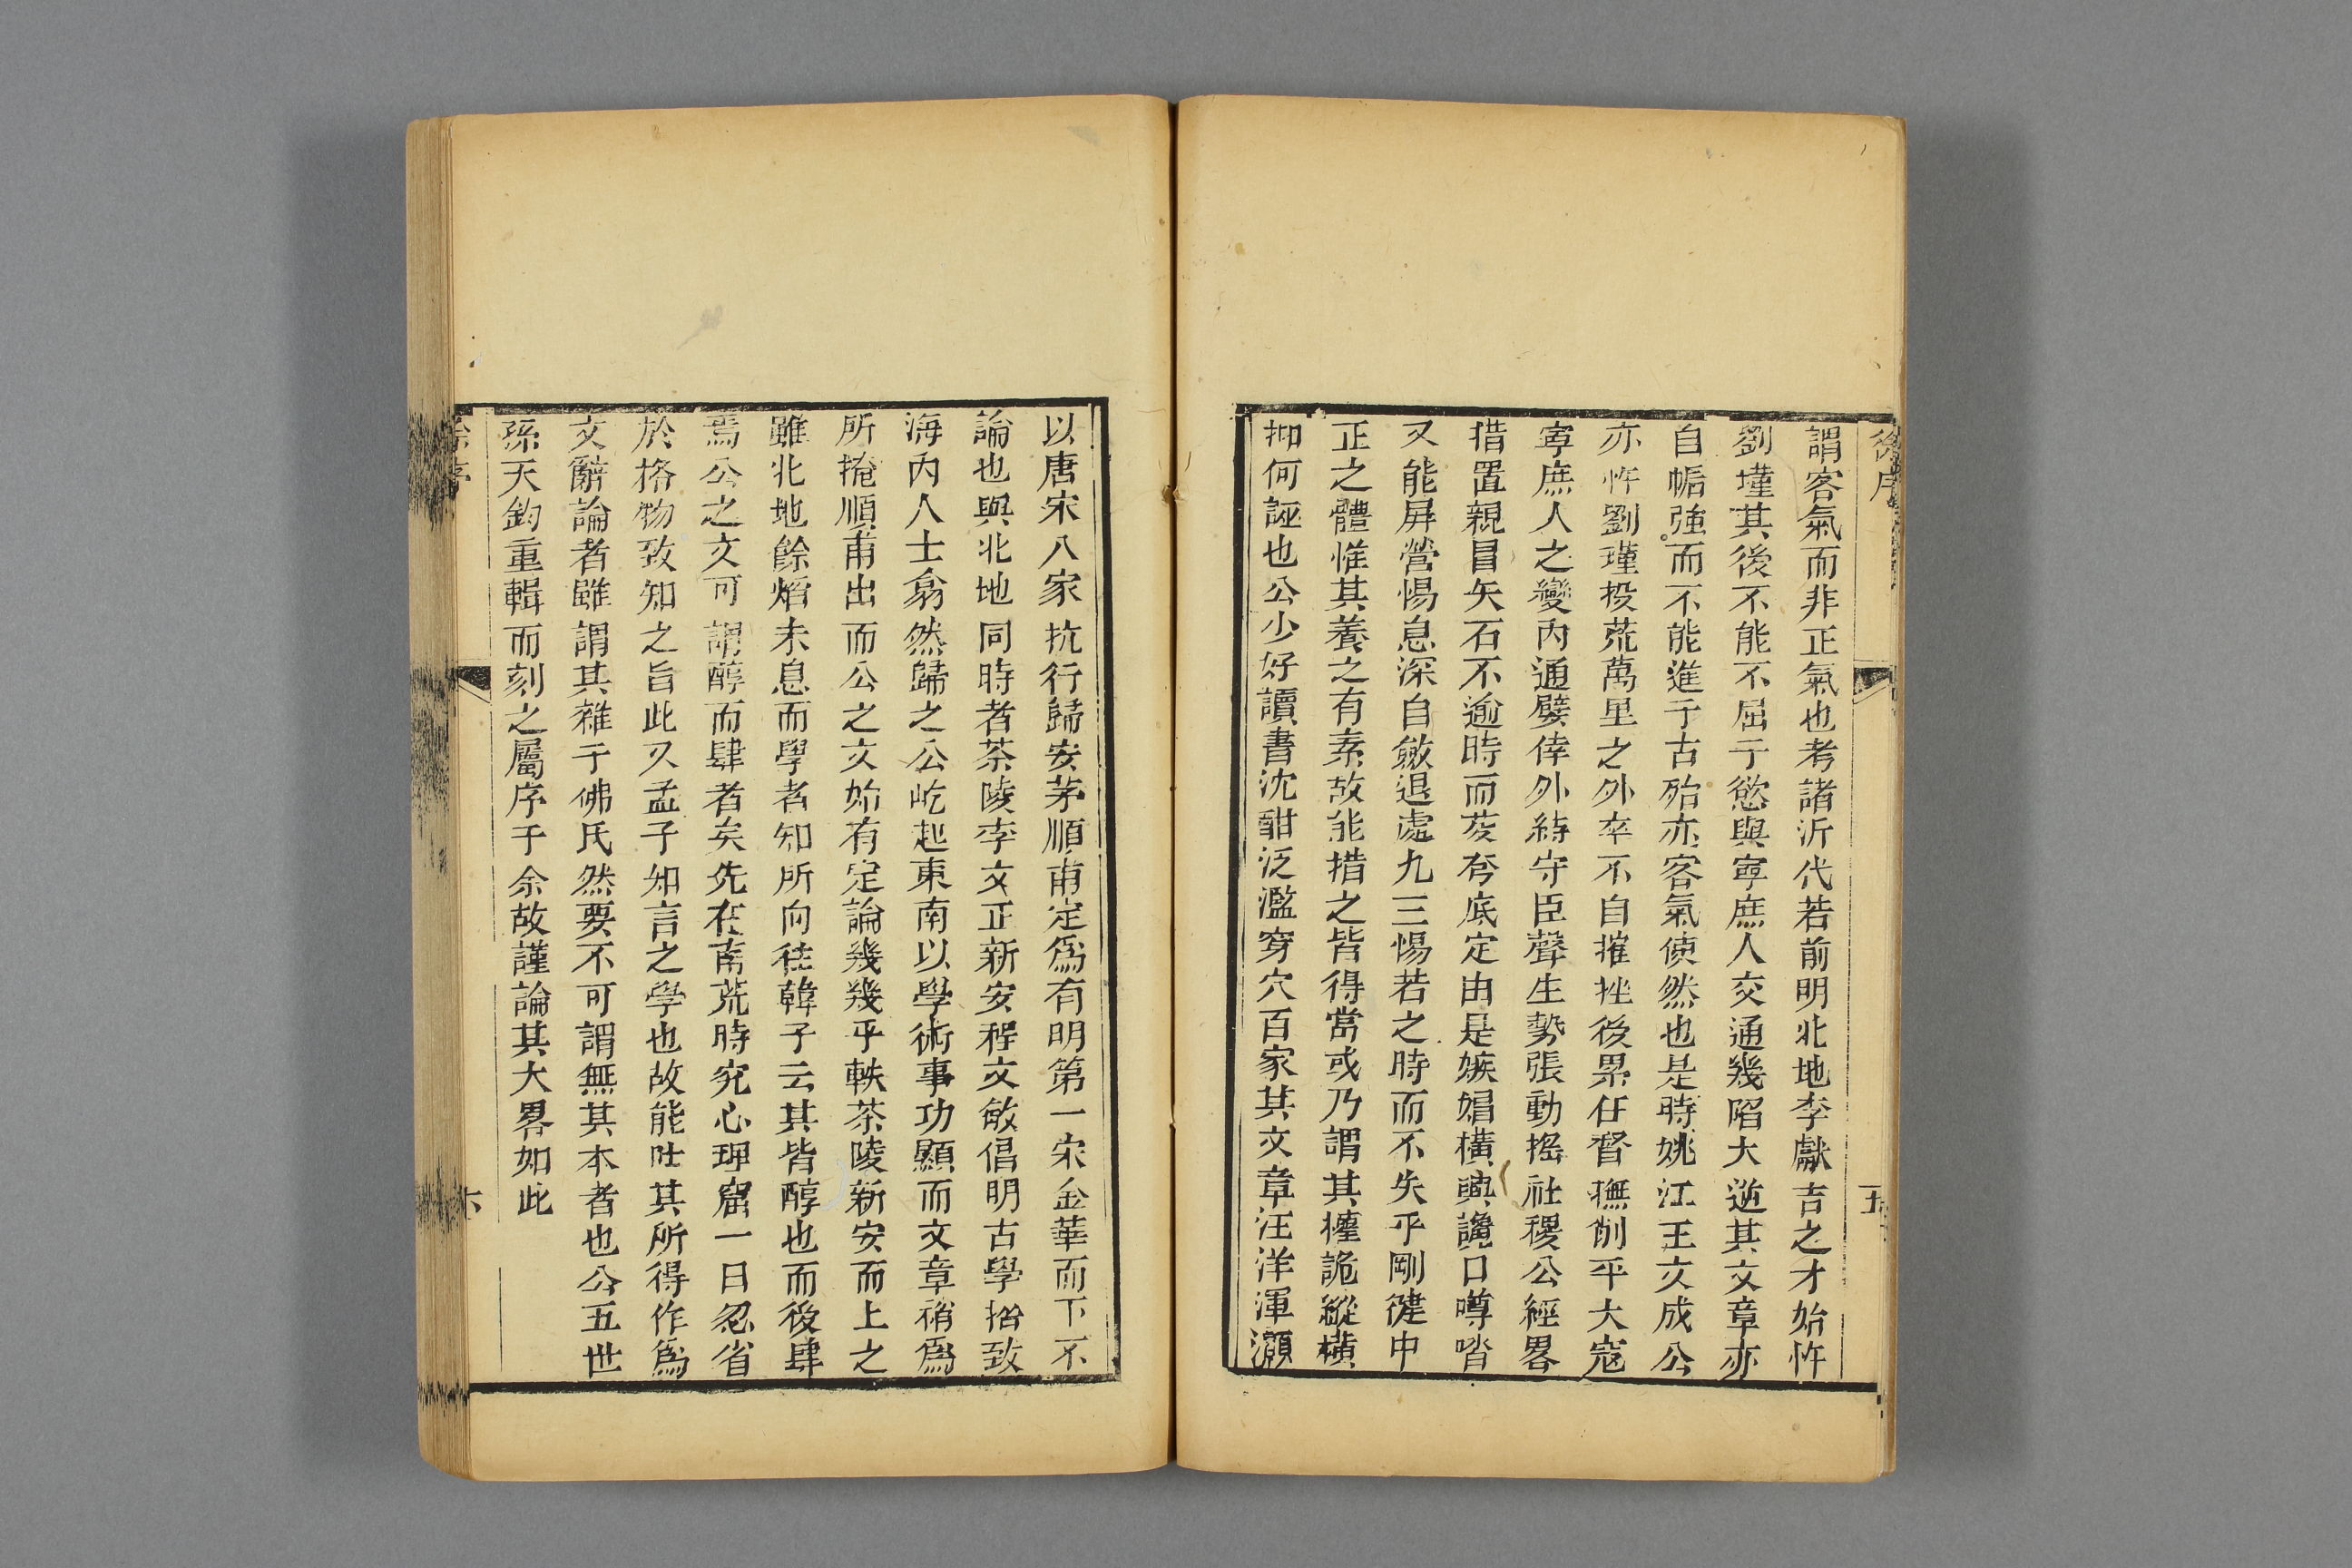 徐序
五
謂客氣而非正氣也考諸沂代若前明北地李獻吉之才始忤
劉瑾其後不能不屈于慾與寧庶人交通幾陷大逆其文章亦
自惛強而不能進于古殆亦客氣使然也是時姚江王文成公
亦忤劉瑾投荒萬里之外卒不自摧挫後累任督撫削平大寇
寧庶人之變內通嬖倖外結守臣聲生勢張動搖社稷公經畧
措置親冒矢石不逾時而茇夸底定由是嫉媢橫興讒口噂喈
又能屏營惕息深自斂退處九三惕若之時而不失乎剛健中
正之體惟其養之有素故能措之皆得當或乃謂其權詭縱橫
抑何誣也公少好讀書沈酣泛濫穿穴百家其文章汪洋渾灝
以唐宋八家抗行歸安茅順甫定爲有明第一宋金華而下不
論也與北地同時者茶陵李文正新安程文敏倡明古學揩致
海內人士翕然歸之公屹起東南以學術事功顯而文章稍爲
所掩順甫出而公之文始有定論幾幾乎軼茶陵新安而上之
雖北地餘熖未息而學者知所向徃韓子云其皆醇也而後肆
焉公之文可謂醇而肆者矣先在南荒時究心理窟一日忽省
於格物致知之旨此又孟子知言之學也故能吐其所得作爲
文辭論者雖謂其雜于佛氏然要不可謂無其本者也公五世
孫天鈞重輯而刻之屬序于余故謹論其大畧如此
徐序
六